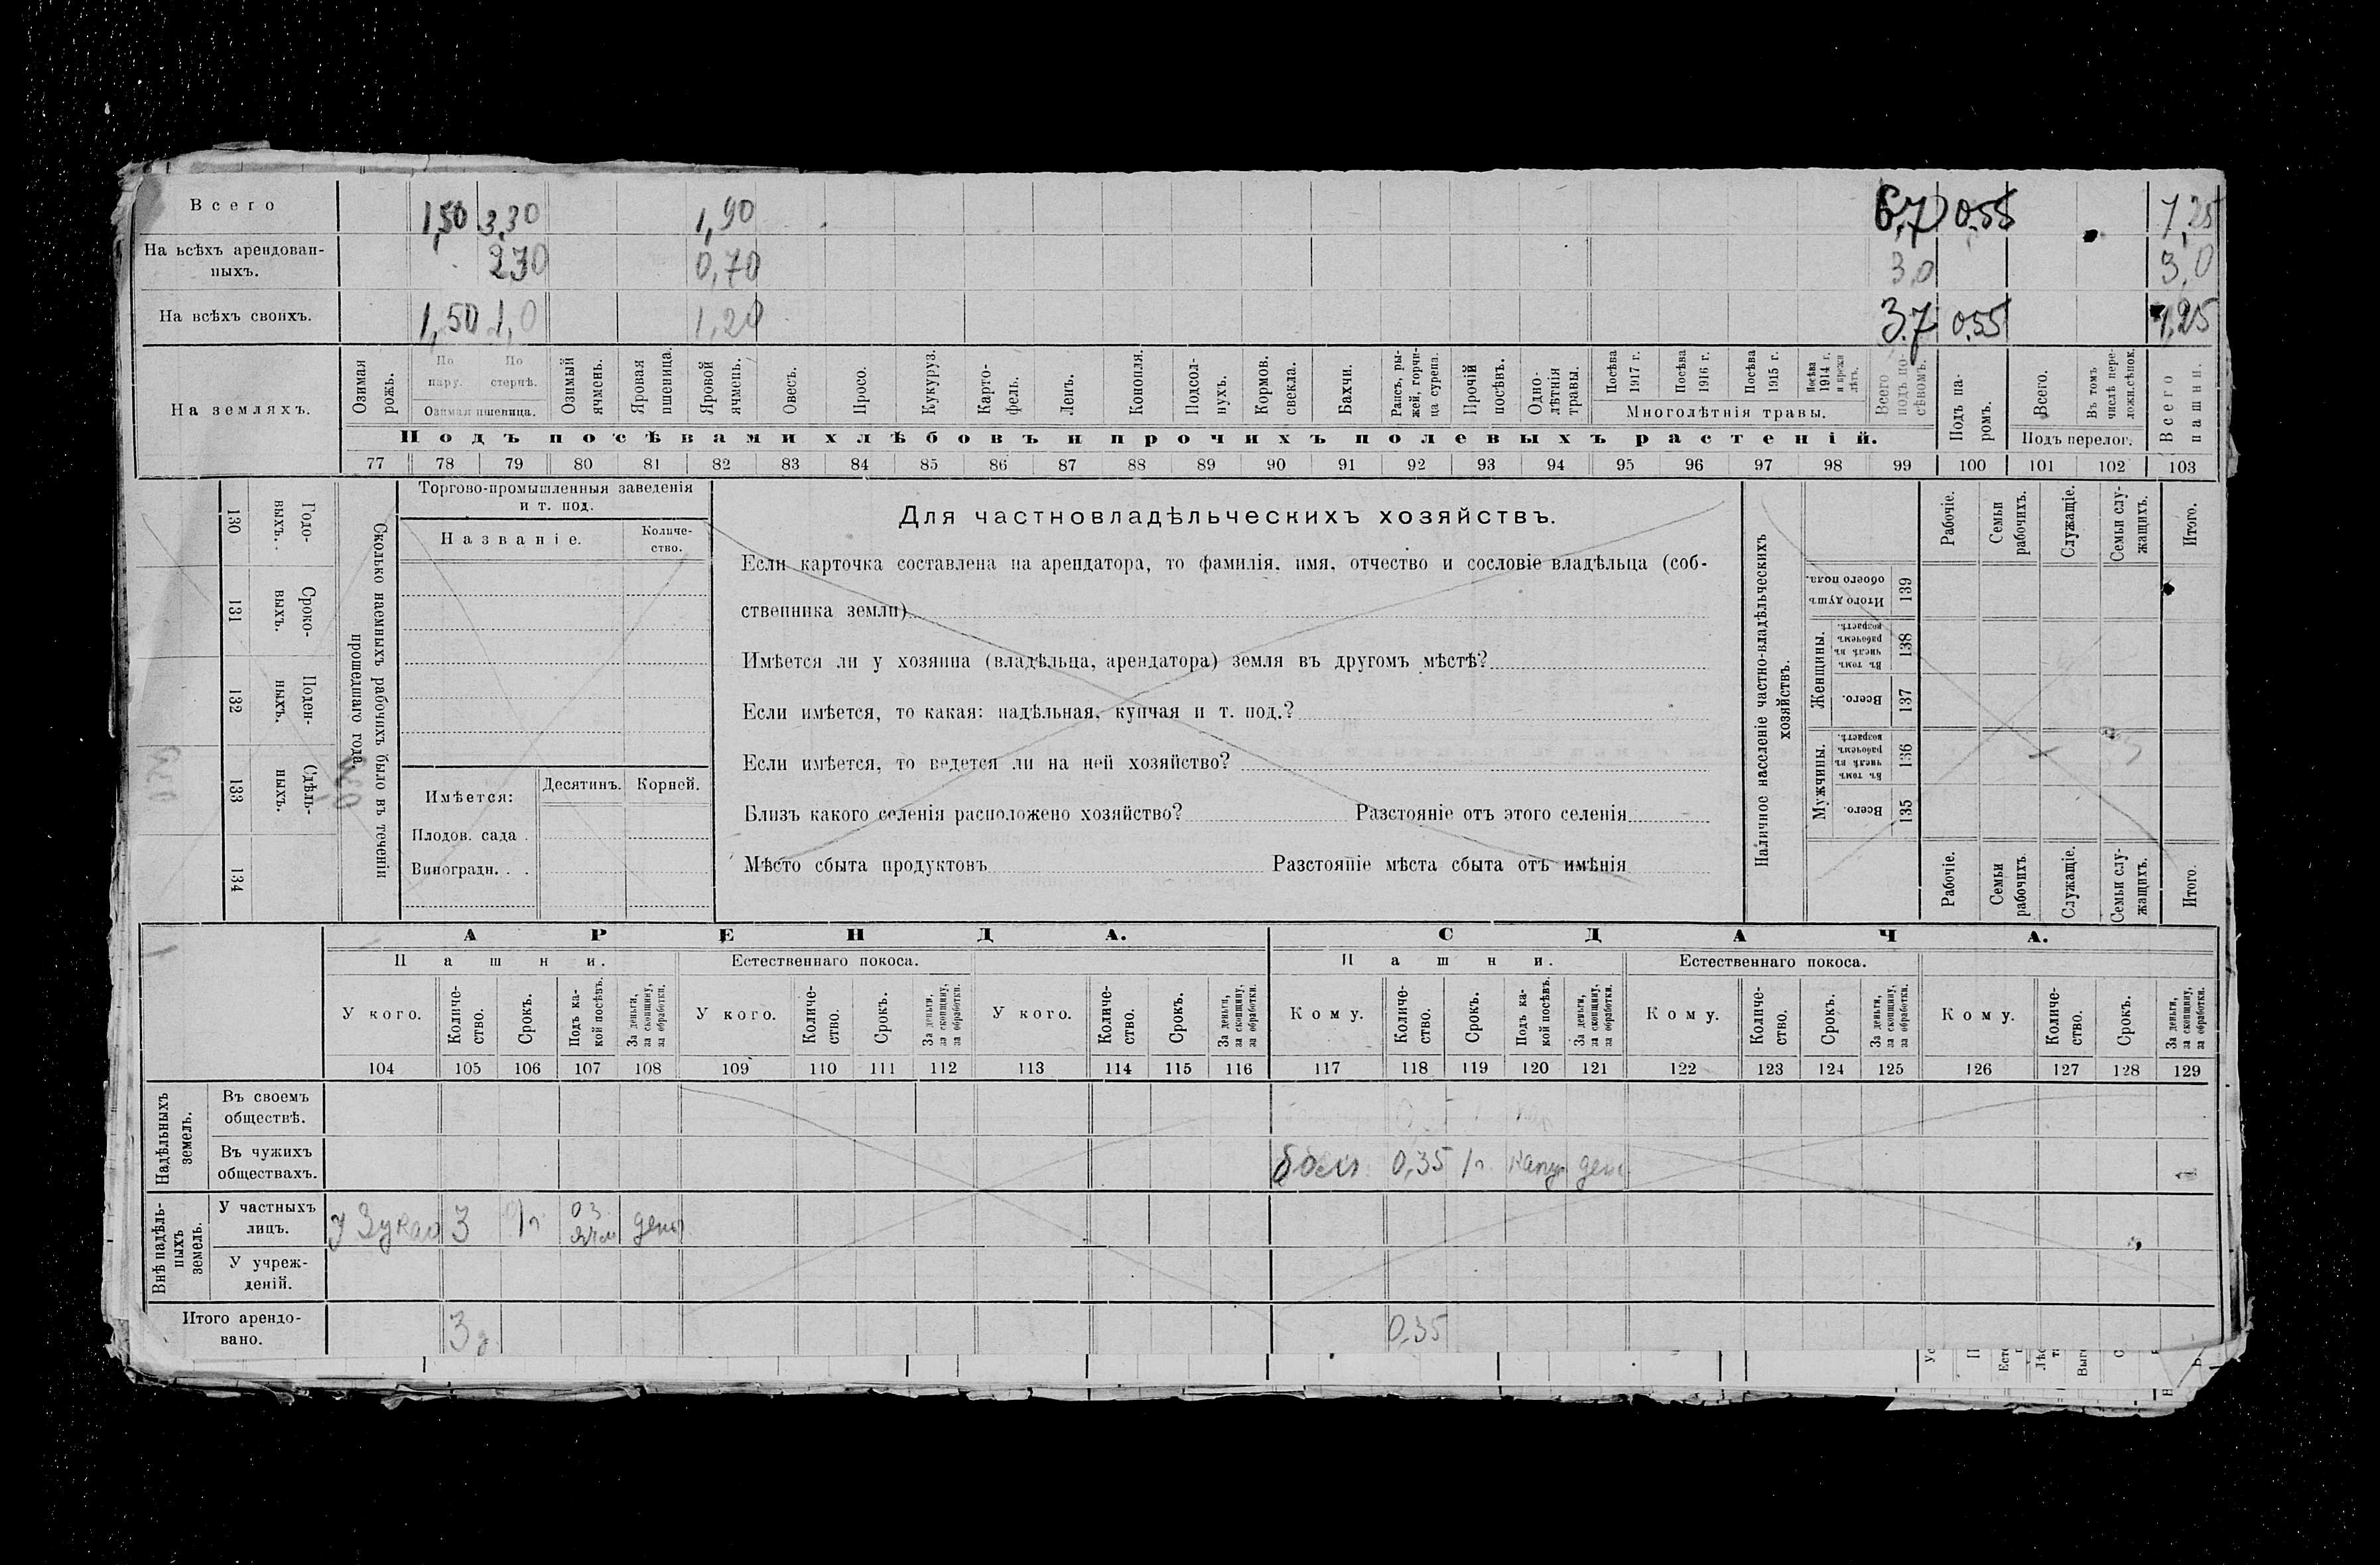 Всего 1,50 3,30 1,90 6,7 0,55 7,25
На всѣхъ арендован-
ныхъ. 2,30 0,70 3,0 3,0
На всѣхъ своихъ. 1,50 1,0 1,20 3,7 0,55
На земляхъ.
Озимая рожь.
По пару.
По стернѣ.
Озимая пшеница.
Озимый ячмень.
Яровая пшеница.
Яровой ячмень.
Овесъ.
Просо.
Кукуруз.
Карто-
фель.
Ленъ.
Конопля.
Подсол-
нухъ.
Кормов.
свекла.
Бахчи.
Рапсъ, ры-
жей, горчи-
ца сурепа.
Прочій
посѣвъ.
Одно-
лѣтнія
травы.
Посѣва 1917 г.
Посѣва 1916 г.
Посѣва 1915 г.
Посѣва 1914 г. и прежн лѣтъ.
Многолѣтнія травы.
Всего подъ по-
сѣвомъ.
Подъ па-
ромъ.
Всего.
Въ томъ числѣ пере-
ложн.сѣнок.
Подъ перелог.
Всего пашни.
Подъ посѣвами хлѣбовъ и прочихъ полевыхъ растеній.
77 78 79 80 81 82 83 84 85 86 87 88 89 90 91 92 93 94 95 96 97 98 99 100 101 102 103
Сколько наемныхъ рабочихъ было въ теченіи
прошедшаго года.
Годо-
выхъ.
130
Сроко-
выхъ.
131
Поден-
ныхъ.
132
Сдѣль-
ныхъ.
133
134
Торгово-промышленныя заведенія
и т. под.
Названіе.
Количе-
ство.
Имѣется:
Десятинъ.
Корней.
Плодов. сада .
Виноградн. . .
Для частновладѣльческихъ хозяйствъ.
Если карточка составлена на арендатора, то фамилія, имя, отчество и сословіе владѣльца (соб-
ственника земли)
Имѣется ли у хозяина (владѣльца, арендатора) земля въ другомъ мѣстѣ?
Если имѣется, то какая: надѣльная, купчая и т. под.?
Если имѣется, то ведется ли на ней хозяйство?
Близъ какого селенія расположено хозяйство? Разстояніе отъ этого селенія
Мѣсто сбыта продуктовъ Разстояніе мѣста сбыта отъ имѣнія
Наличное населеніе частно-владѣльческихъ
хозяйствъ.
Рабочіе.
Семьи рабочихъ.
Служащіе.
Семьи слу-
жащихъ.
Итого.
Итого душъ обоего пола.
139
Женщины.
Въ томъ числѣ въ рабочемъ возрастѣ.
138
Всего.
137
Мужчины.
Въ томъ числѣ въ рабочемъ возрастѣ.
136
Всего.
135
Рабочіе.
Семьи рабочихъ.
Служащіе.
Семьи слу-
жащихъ.
Итого.
АРЕНДА. СДАЧА.
Пашни. Естественнаго покоса. Пашни. Естественнаго покоса.
У кого.
Количе-
ство.
Срокъ.
Подъ ка-
кой посѣвъ.
За деньги,
за скопщину,
за обработки.
У кого.
Количе-
ство.
Срокъ.
За деньги,
за скопщину,
за обработки.
У кого.
Количе-
ство.
Срокъ.
За деньги,
за скопщину,
за обработки.
Кому.
Количе-
ство.
Срокъ.
Подъ ка-
кой посѣвъ.
За деньги,
за скопщину,
за обработки.
Кому.
Количе-
ство.
Срокъ.
За деньги,
за скопщину,
за обработки.
Кому.
Количе-
ство.
Срокъ.
За деньги,
за скопщину,
за обработки.
104 105 106 107 108 109 110 111 112 113 114 115 116 117 118 119 120 121 122 123 124 125 126 127 128 129
Надѣльныхъ
земель.
Въ своемъ
обществѣ.
Въ чужихъ
обществахъ. 0,35 1г.
Внѣ надѣль-
ныхъ
земель.
У частныхъ
лицъ. 3 1г. оз
У учреж-
деній.
Итого арендо-
вано. 3 0,35